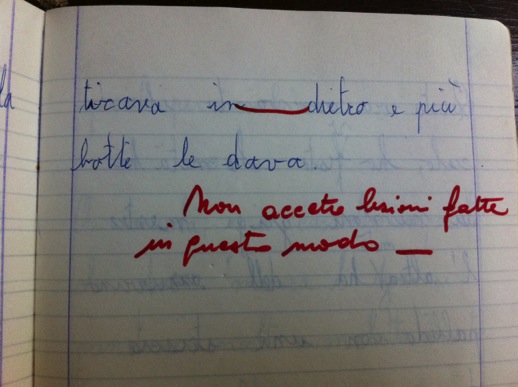 la
tirava in dietro e più
botte le dava.
Non accetto lezioni fatte
in questo modo